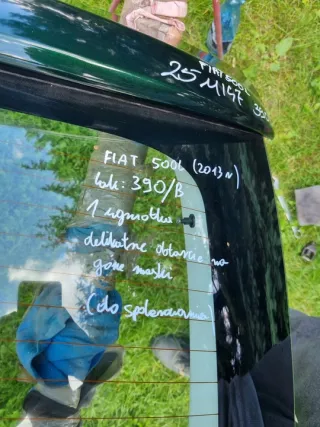 FIAT 500L
25 MIGF 350
FIAT 500L (2013r)
lak: 390/B
1 wgniotka
delikatne obtarcie na
górze maski
(do spolerowania)